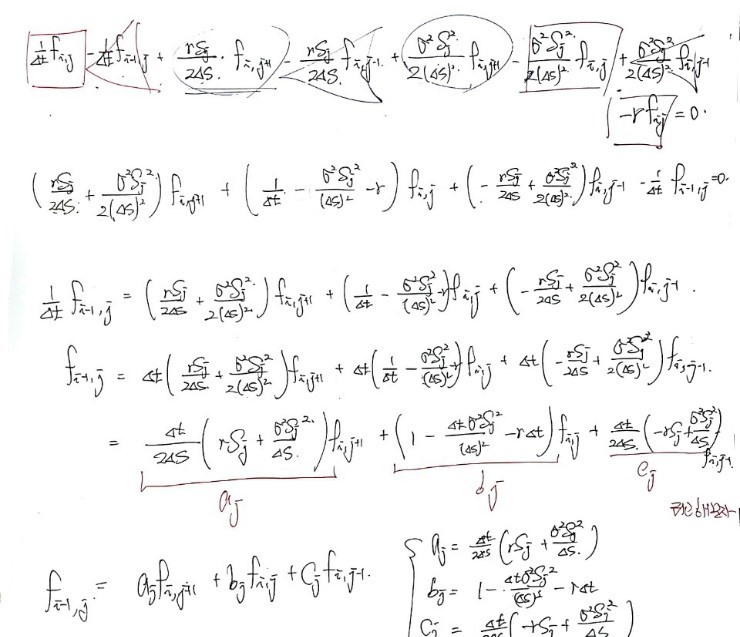 1/Δt f_{i,j} - 1/Δt f_{i-1,j} + rS_j/2ΔS · f_{i,j+1} - rS_j/2ΔS f_{i,j-1} + σ²S_j²/2(ΔS)² f_{i,j+1} - σ²S_j²/2(ΔS)² f_{i,j} + σ²S_j²/2(ΔS)² f_{i,j-1}
-rf_{i,j} = 0.
(rS_j/2ΔS + σ²S_j²/2(ΔS)²) f_{i,j+1} + (1/Δt - σ²S_j²/(ΔS)² - r) f_{i,j} + (-rS_j/2ΔS + σ²S_j²/2(ΔS)²) f_{i,j-1} - 1/Δt f_{i-1,j} = 0.
1/Δt f_{i-1,j} = (rS_j/2ΔS + σ²S_j²/2(ΔS)²) f_{i,j+1} + (1/Δt - σ²S_j²/(ΔS)² - r) f_{i,j} + (-rS_j/2ΔS + σ²S_j²/2(ΔS)²) f_{i,j-1}.
f_{i-1,j} = Δt(rS_j/2ΔS + σ²S_j²/2(ΔS)²) f_{i,j+1} + Δt(1/Δt - σ²S_j²/(ΔS)² - r) f_{i,j} + Δt(-rS_j/2ΔS + σ²S_j²/2(ΔS)²) f_{i,j-1}.
= Δt/2ΔS (rS_j + σ²S_j²/ΔS) f_{i,j+1} + (1 - Δtσ²S_j²/(ΔS)² - rΔt) f_{i,j} + Δt/2ΔS (-rS_j + σ²S_j²/ΔS) f_{i,j-1}
a_j b_j c_j
f_{i-1,j} = a_j f_{i,j+1} + b_j f_{i,j} + c_j f_{i,j-1}.
a_j = Δt/2ΔS (rS_j + σ²S_j²/ΔS)
b_j = 1 - Δtσ²S_j²/(ΔS)² - rΔt
c_j = Δt/2ΔS (-rS_j + σ²S_j²/ΔS)